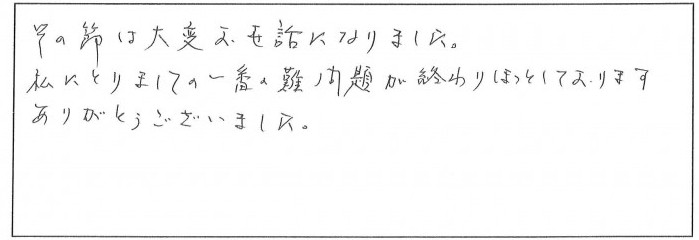 その節は大変お世話になりました。
私にとりましての一番の難問題が終わりほっとしております
ありがとうございました。